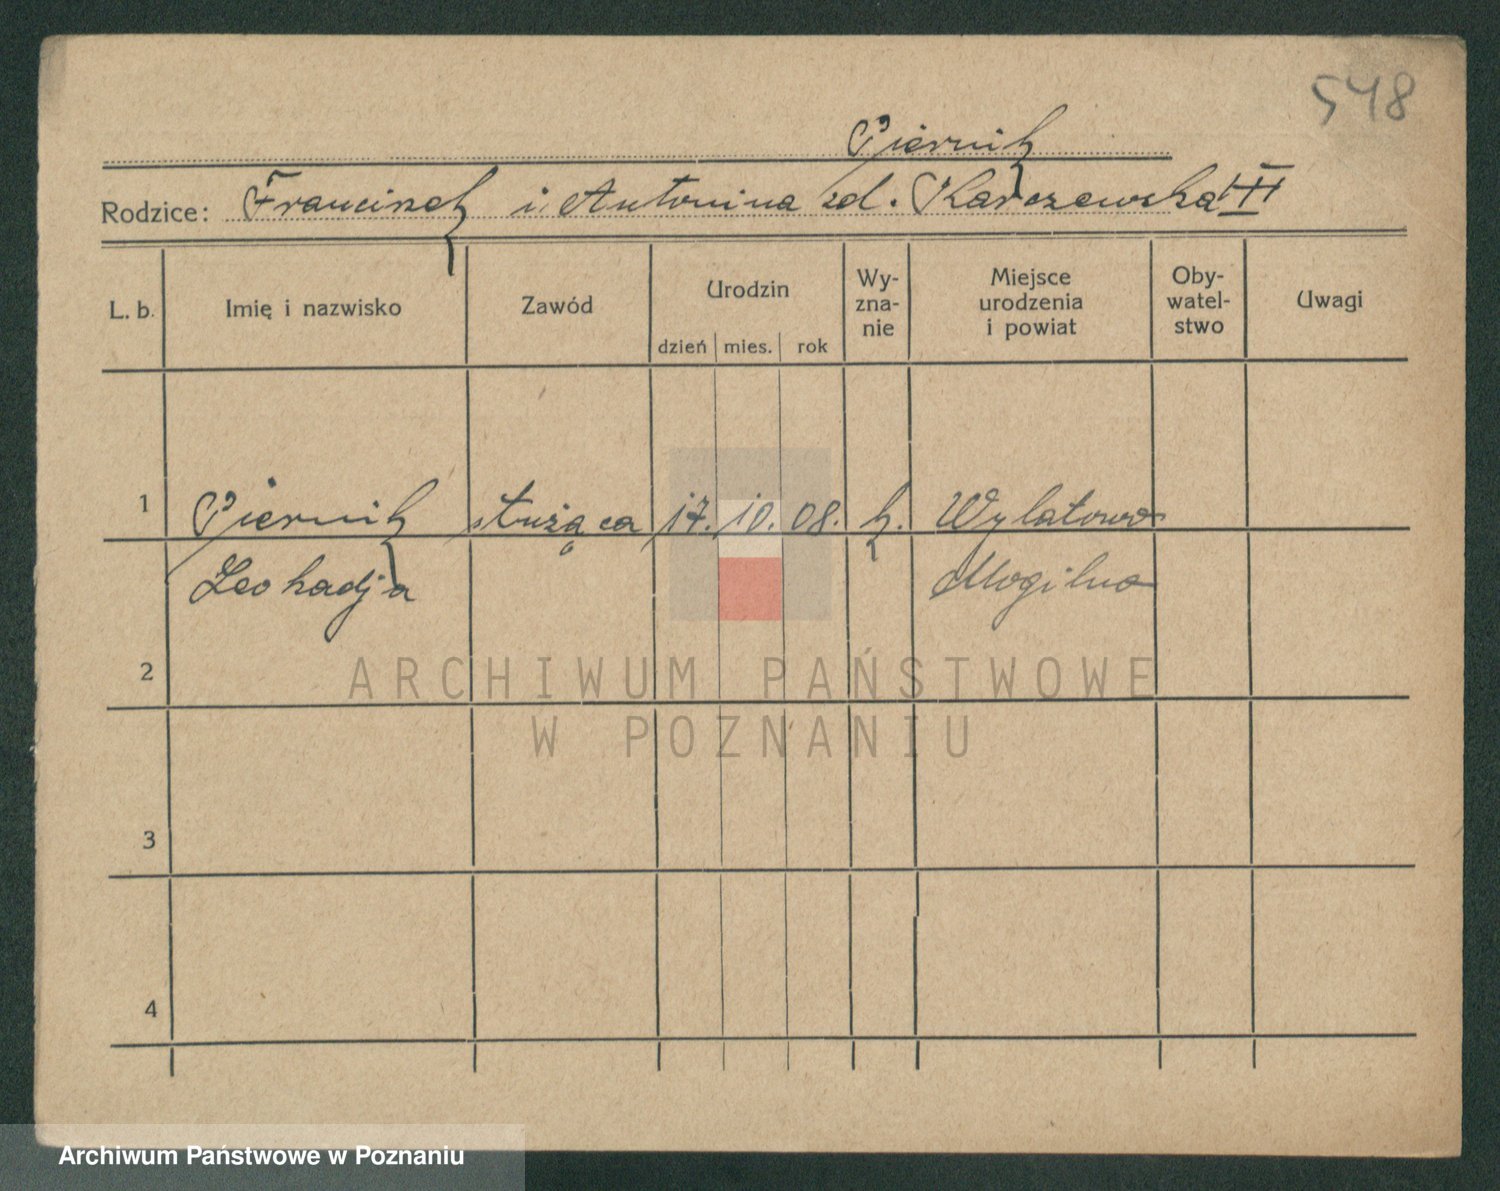 548
Piernik
Rodzice: Franciszek i Antonina zd. Karczewska
L. b. Imię i nazwisko Zawód Urodzin Wy-zna-nie Miejsce urodzenia i powiat Oby-watel-stwo Uwagi
dzień mies. rok
1 Piernik służąca 17. 10. 08. k. Wylatowo
Leokadja Mogilno
2
ARCHIWUM PAŃSTWOWE
W POZNANIU
3
4
Archiwum Państwowe w Poznaniu